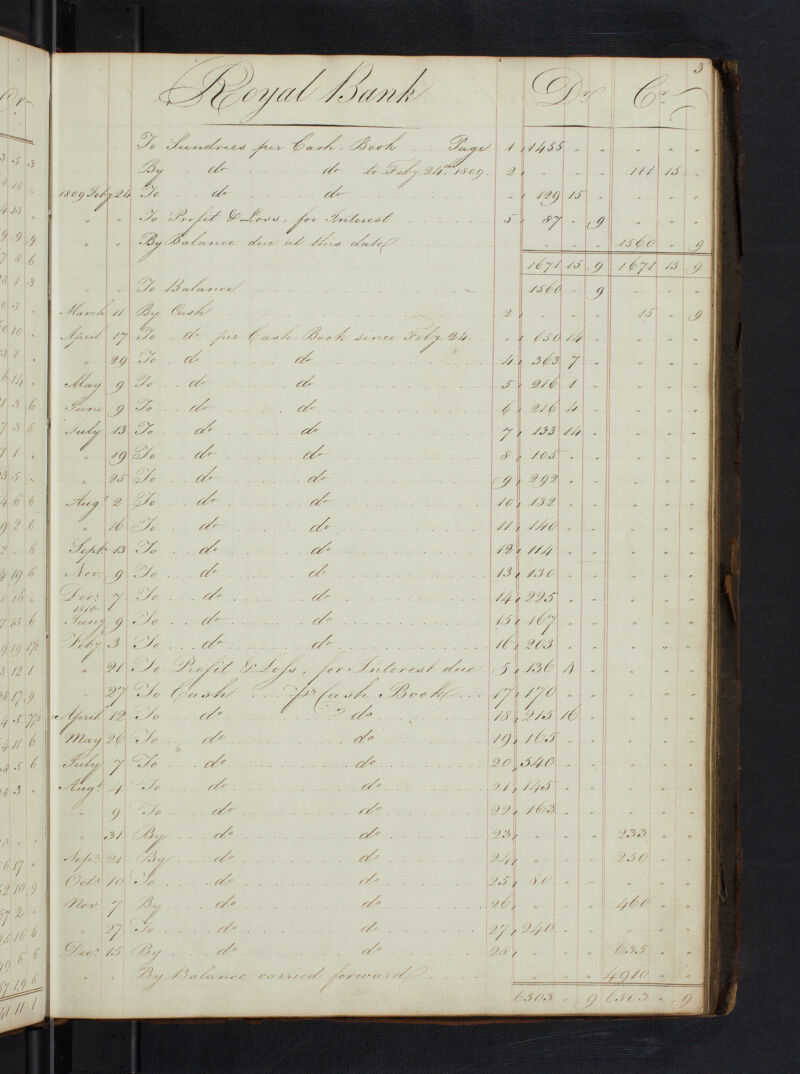 3
Royal Bank Dr Cr
To Sundries per Cash-Book Page 1 1455 " " " " "
By do do to Feby. 24th 1809 2 " " " 111 15 "
1809 Feby 24 To do do " 129 15 " " " "
" " To Profit & Loss, for Interest 5 87 " 9 " " "
" " By Balance due at this date 1560 " 9
1671 15 9 1671 15 9
" " To Balance 1560 " 9 " " "
March 11 By Cash 2 " " " 15 " 9
April 17 To do per Cash Book since Feby. 24 " 650 14 " " " "
" 29 To do do 4 363 7 " " " "
May 9 To do do 5 216 1 " " " "
June 9 To do do 6 216 4 " " " "
July 13 To do do 7 133 14 " " " "
" 19 To do do 8 105 " " " " "
" 25 To do do 9 292 " " " " "
Augt 2 To do do 10 132 " " " " "
" 16 To do do 11 140 " " " " "
Septr 13 To do do 12 114 " " " " "
Nov 9 To do do 13 130 " " " " "
Decr 7 To do do 14 225 " " " " "
1810
Jany 9 To do do 15 167 " " " " "
Feby 3 To do do 16 203 " " " " "
" 21 To Profit & Loss, for Interest due 5 136 4 " " " "
" 27 To Cash pr Cash Book 17 170 " " " " "
April 12 To do do 18 215 16 " " " "
May 26 To do do 19 165 " " " " "
July 7 To do do 20 540 " " " " "
Augt 4 To do do 21 145 " " " " "
" 9 To do do 22 163 " " " " "
" 31 By do do 23 " " " 233 " "
Sepr 21 By do do 24 " " " 250 " "
Octr 10 To do do 25 80 " " " " "
Nov 7 By do do 26 " " " 460 " "
" 27 To do do 27 240 " " " " "
Decr 15 By do do 28 " " " 635 " "
" " By Balance carried forward " " " 4910 " "
6503 " 9 6503 " 9